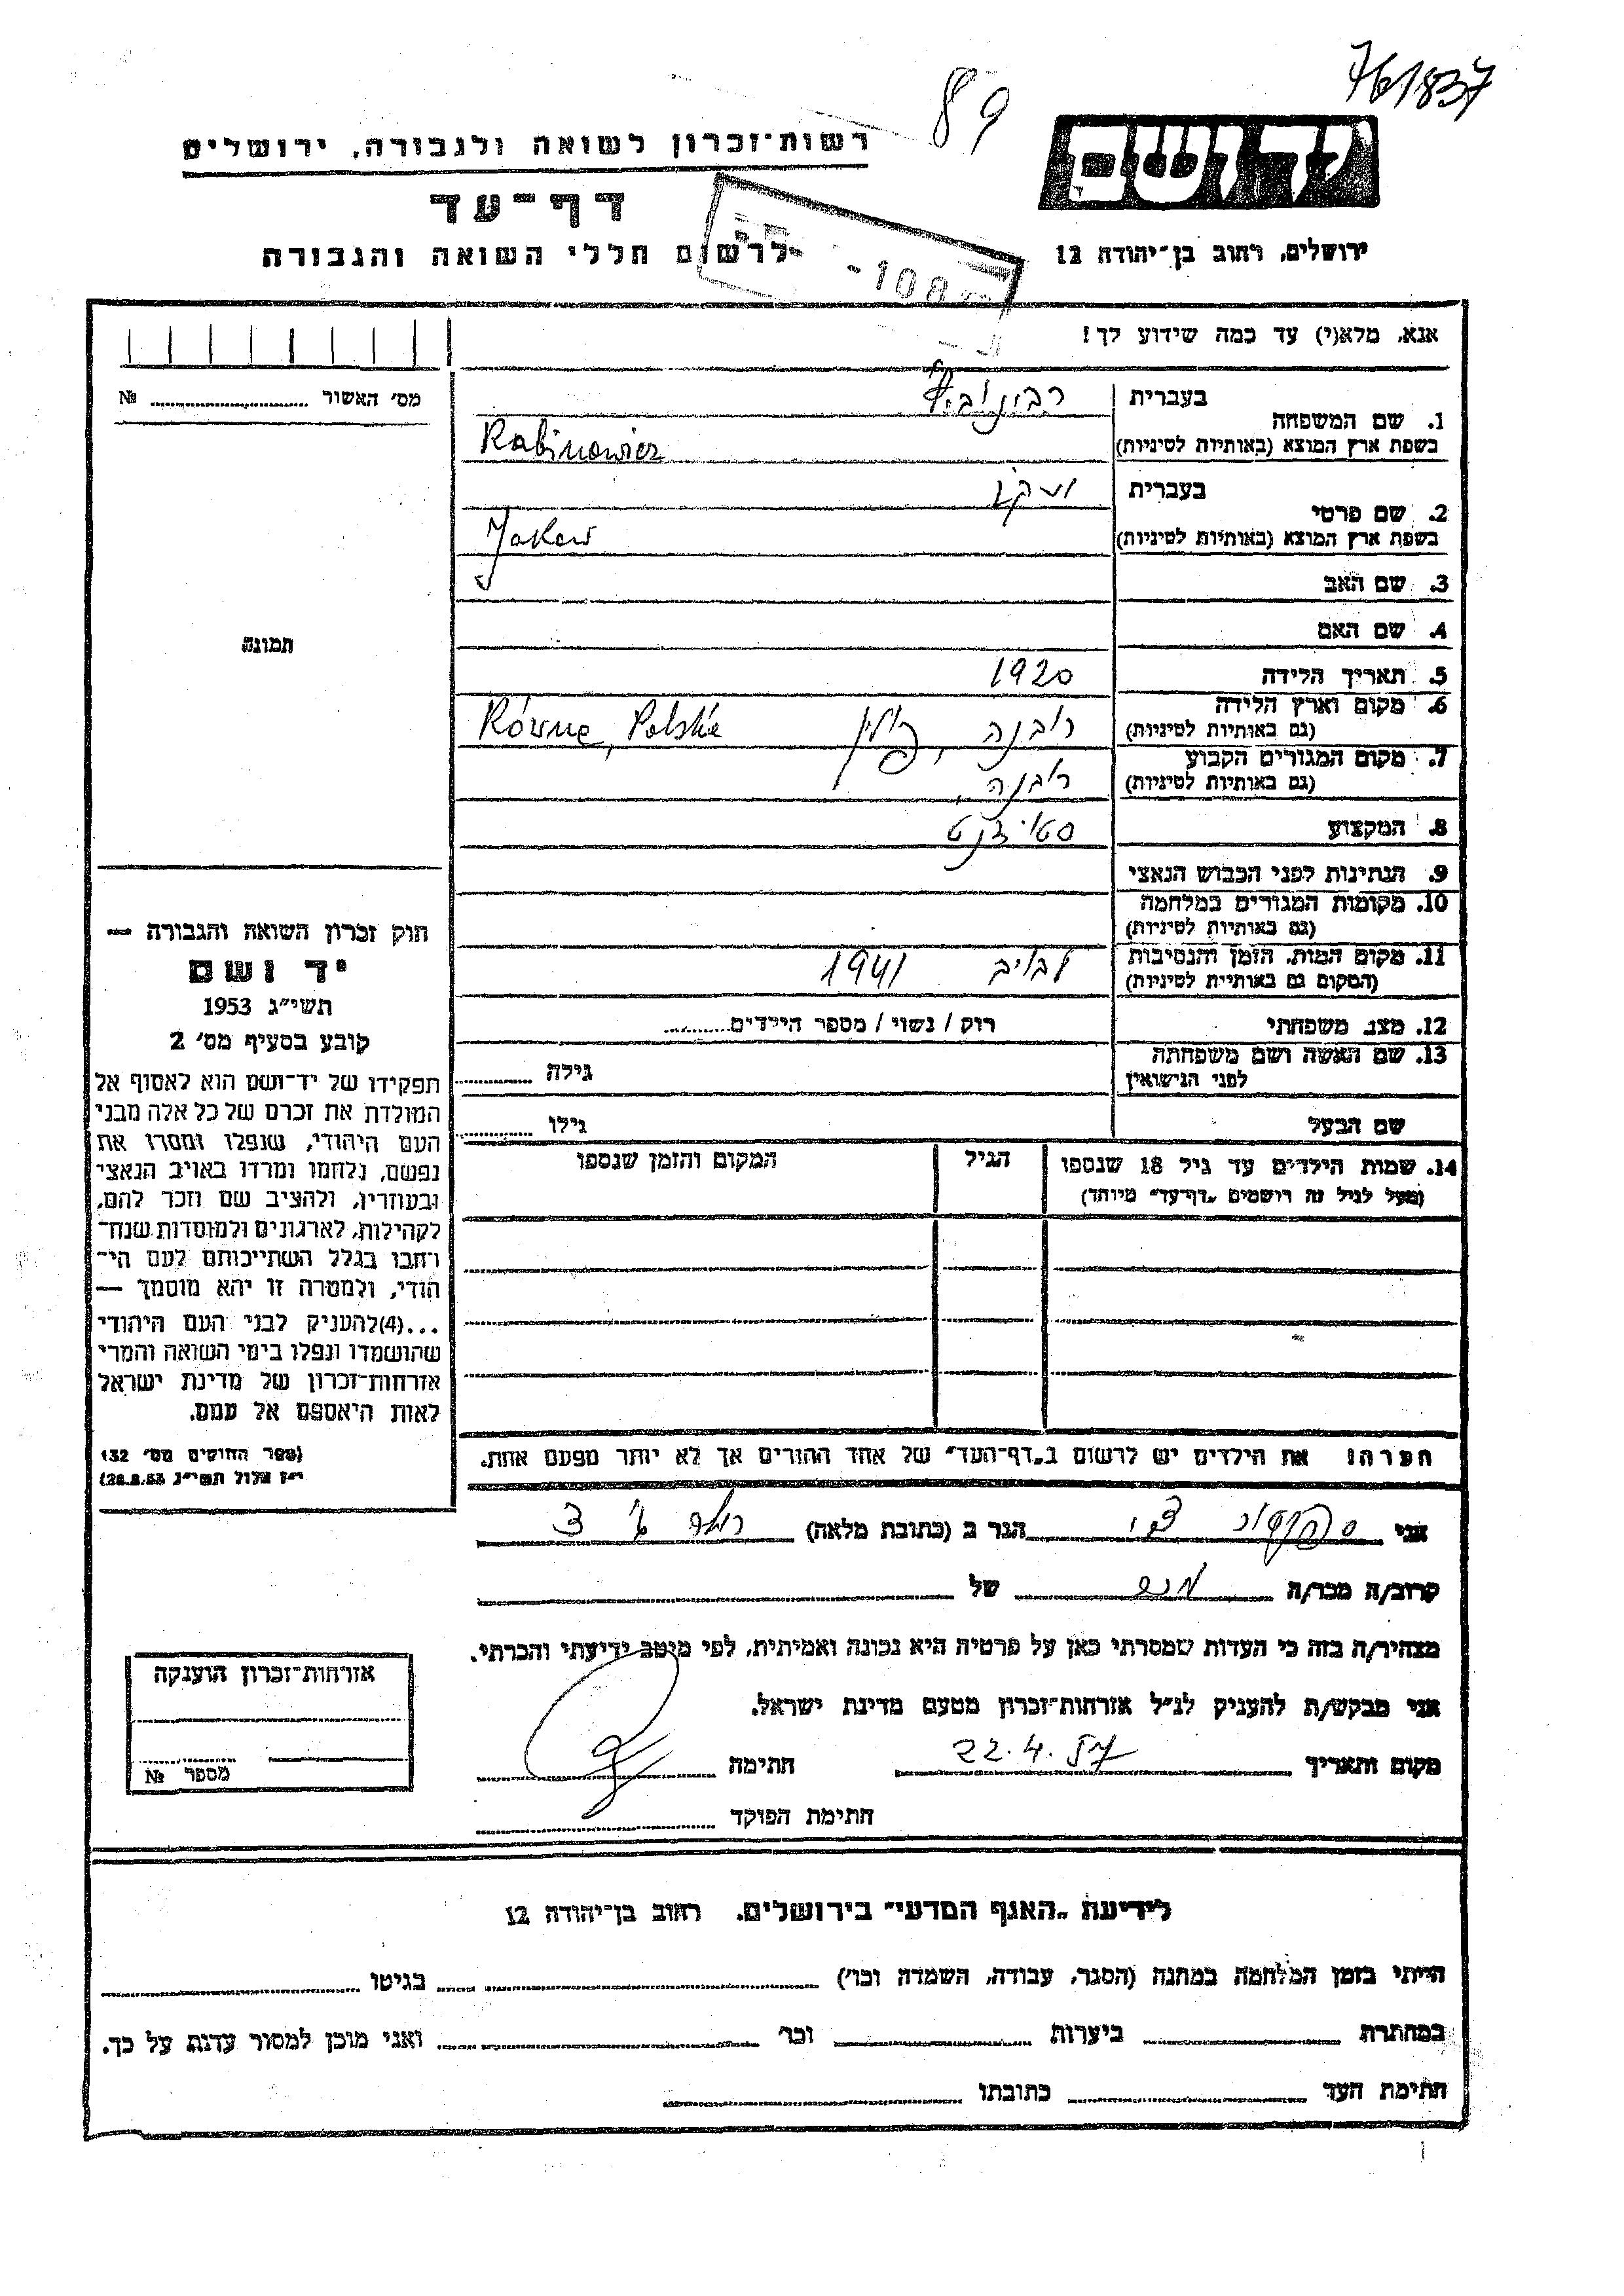 761837
89
יד ושם
רשות־זכרון לשואה ולגבורה, ירושלים
דף־עד
לרשום חללי השואה והגבורה
ירושלים, רחוב בן־יהודה 12
אנא, מלא(י) עד כמה שידוע לך!
מס' האשור № ........
1. שם המשפחה בעברית רבינוביץ
בשפת ארץ המוצא (באותיות לטיניות) Rabinowicz
2. שם פרטי בעברית יעקב
בשפת ארץ המוצא (באותיות לטיניות) Jakow
3. שם האב
4. שם האם
תמונה
5. תאריך הלידה 1920
6. מקום וארץ הלידה (גם באותיות לטיניות) רובנה, פולין Równe, Polska
7. מקום המגורים הקבוע (גם באותיות לטיניות) רובנה,
8. המקצוע סטודנט
9. הנתינות לפני הכבוש הנאצי
10. מקומות המגורים במלחמה (גם באותיות לטיניות)
11. מקום המות, הזמן והנסיבות (המקום גם באותיות לטיניות) לבוב 1941
12. מצב משפחתי רוק / נשוי / מספר הילדים........
13. שם האשה ושם משפחתה לפני הנישואין גילה ........
שם הבעל גילו ........
14. שמות הילדים עד גיל 18 שנספו הגיל המקום והזמן שנספו
(מעל לגיל זה רושמים „דף־עד" מיוחד)
חוק זכרון השואה והגבורה —
יד ושם
תשי"ג 1953
קובע בסעיף מס' 2
תפקידו של יד־ושם הוא לאסוף אל
המולדת את זכרם של כל אלה מבני
העם היהודי, שנפלו ומסרו את
נפשם, נלחמו ומרדו באויב הנאצי
ובעוזריו, ולהציב שם וזכר להם,
לקהילות, לארגונים ולמוסדות שנח־
רחבו בגלל השתייכותם לעם הי־
הודי, ולמטרה זו יהא מוסמך —
...(4)להעניק לבני העם היהודי
שהושמדו ונפלו בימי השואה והמרי
אזרחות־זכרון של מדינת ישראל
לאות היאספם אל עמם.
(ספר החוקים מס' 132
י"ז אלול תשי"ג 28.8.53)
הערה: את הילדים יש לרשום ב„דף־העד" של אחד ההורים אך לא יותר מפעם אחת.
אני צבי הגר ב (כתובת מלאה)
קרוב/ה מכר/ה מכר של
מצהיר/ה בזה כי העדות שמסרתי כאן על פרטיה היא נכונה ואמיתית, לפי מיטב ידיעתי והכרתי.
אני מבקש/ת להעניק לנ"ל אזרחות־זכרון מטעם מדינת ישראל.
מקום ותאריך 22.4.57 חתימה
חתימת הפוקד
אזרחות־זכרון הוענקה
מספר №
לידיעת „האגף המדעי" בירושלים, רחוב בן־יהודה 12
הייתי בזמן המלחמה במחנה (הסגר, עבודה, השמדה וכו') בגיטו
במחתרת ביערות וכו' ואני מוכן למסור עדות על כך.
חתימת העד כתובתו